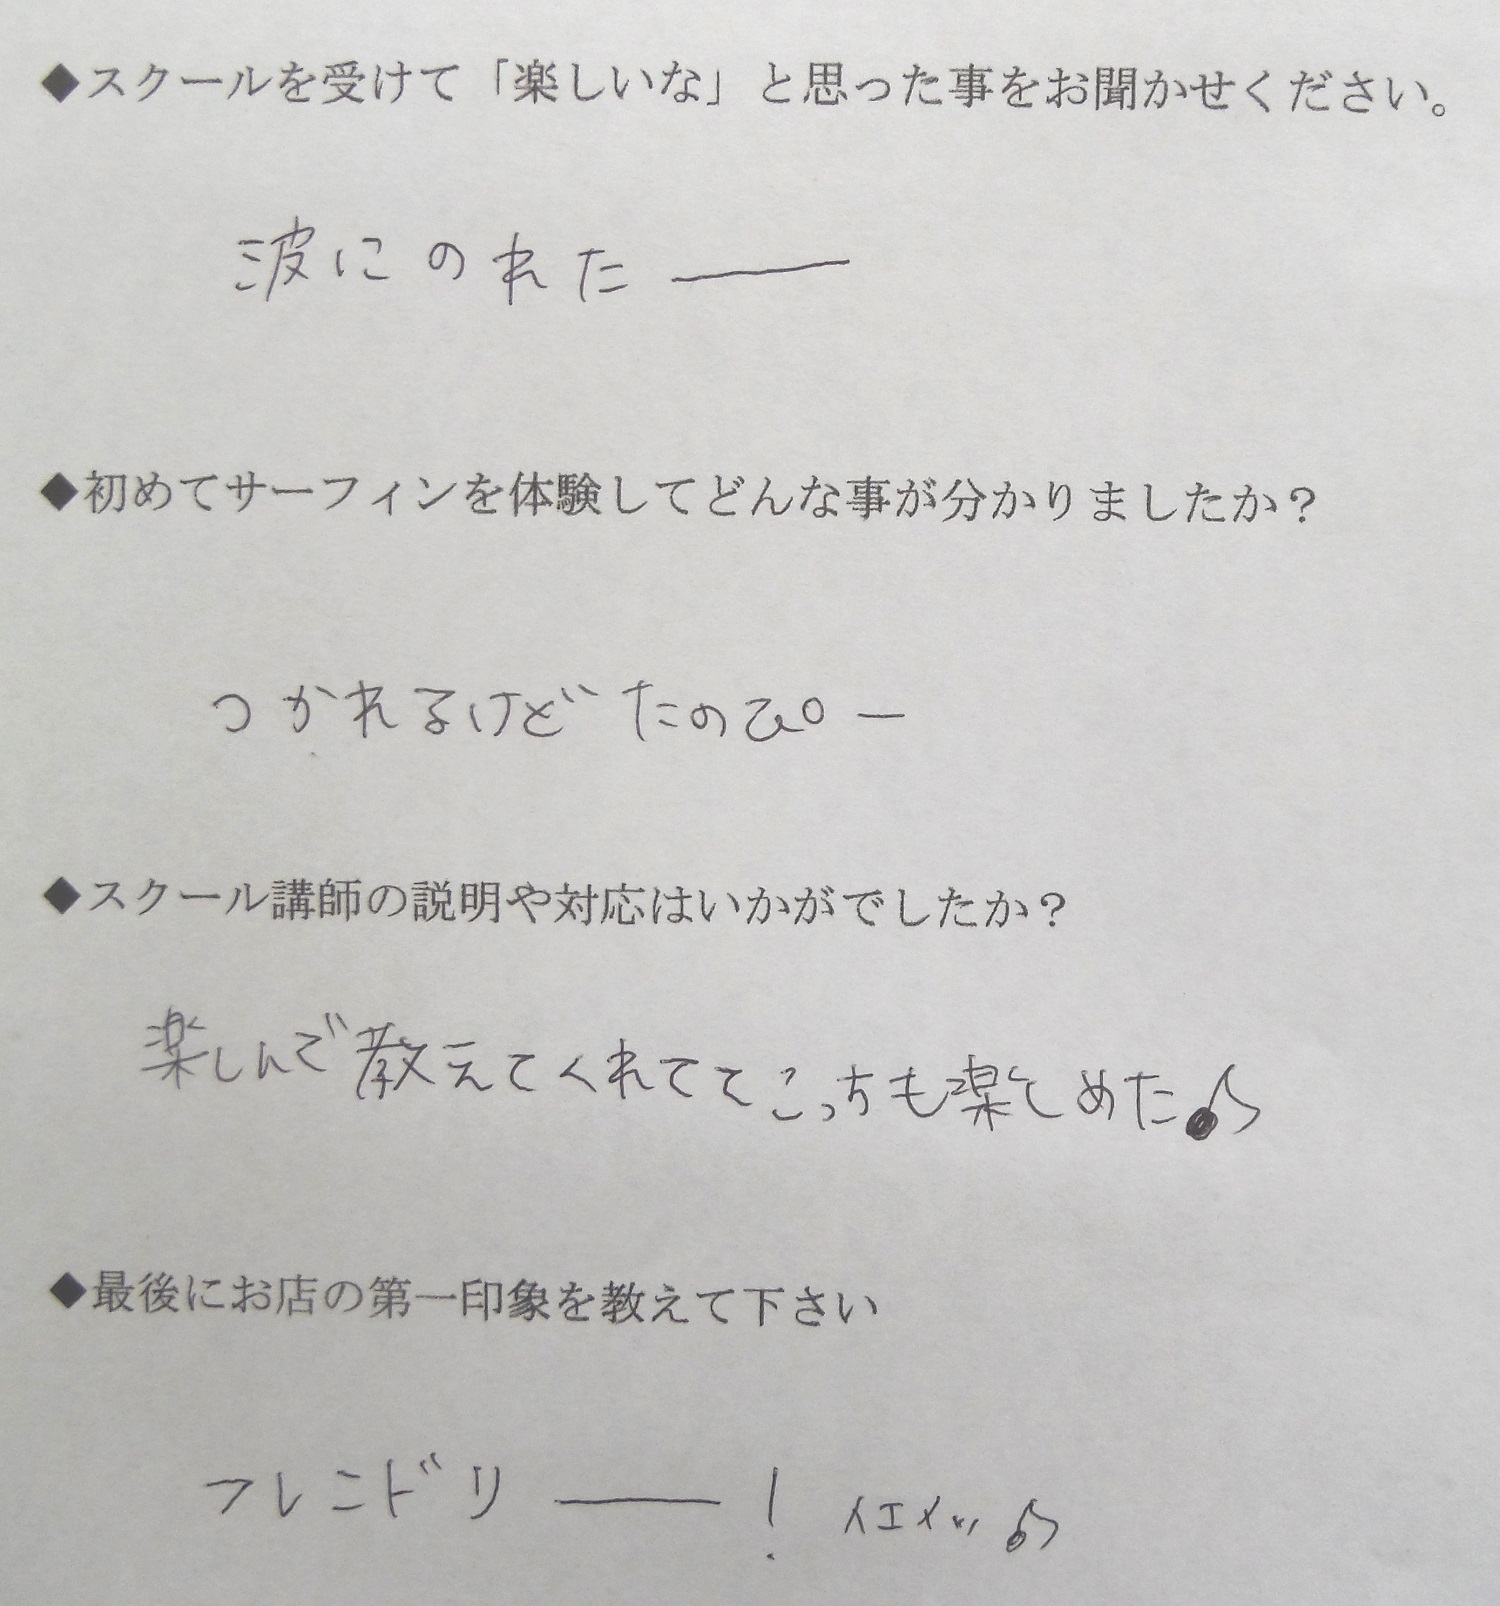 ◆スクールを受けて「楽しいな」と思った事をお聞かせください。
波にのれたー
◆初めてサーフィンを体験してどんな事が分かりましたか？
つかれるけどたのぴー
◆スクール講師の説明や対応はいかがでしたか？
楽しんで教えてくれててこっちも楽しめた♪
◆最後にお店の第一印象を教えて下さい
フレンドリー！イエイッ♪